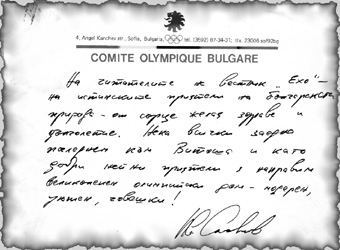 4, Angel Kanchev str., Sofia, Bulgaria, tel. (3592) 87-34-31; tlx. 23006 soflbg
COMITE OLYMPIQUE BULGARE
На читателите на вестник "Ехо" –
на истинските приятели на българската
природа – от сърце желая здраве и
дълголетие. Нека всички заедно
погледнем към Витоша и като
добри нейни приятели я направим
великолепен олимпийски дом – модерен,
уютен, човешки!